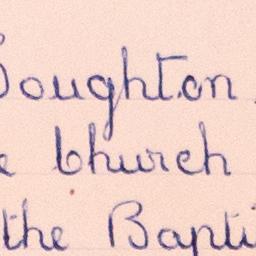 Soughton
e Church
the Bapti